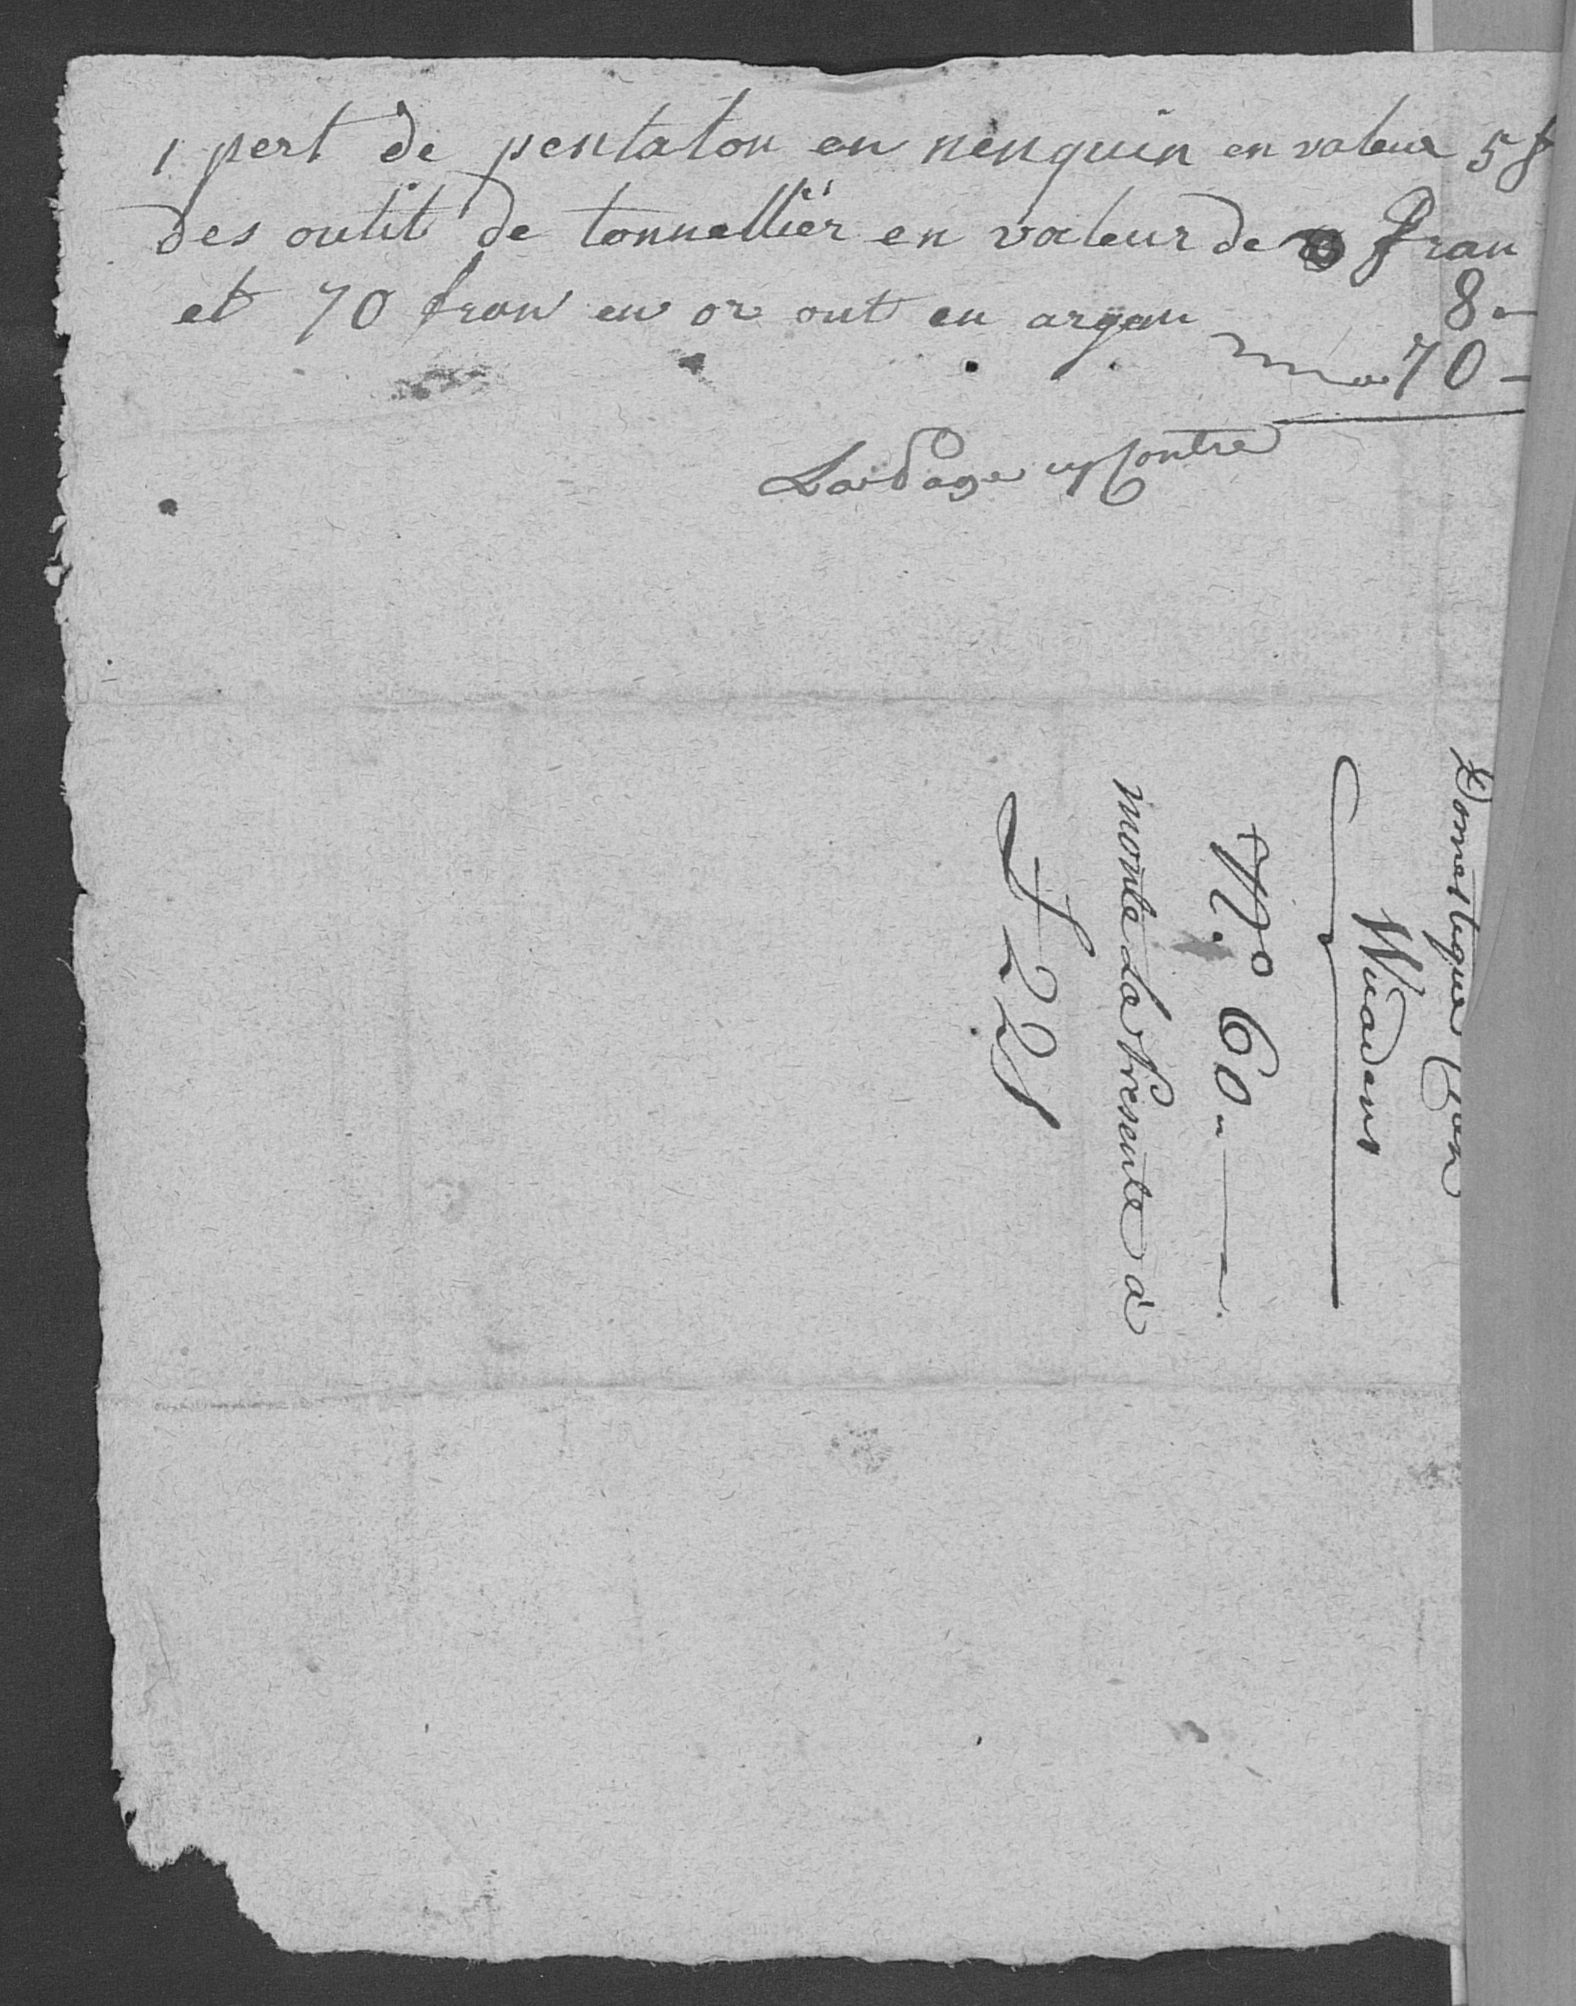 1 pert de pentalon en nenquin en valeur 5 f
des outit de tonnellier en valeur de fran
et 70 fran en or out en argan 8 -
70 -
La Page cy Contre
Domestique
Wuadens
N.º 60
monte La Presente à
f 221